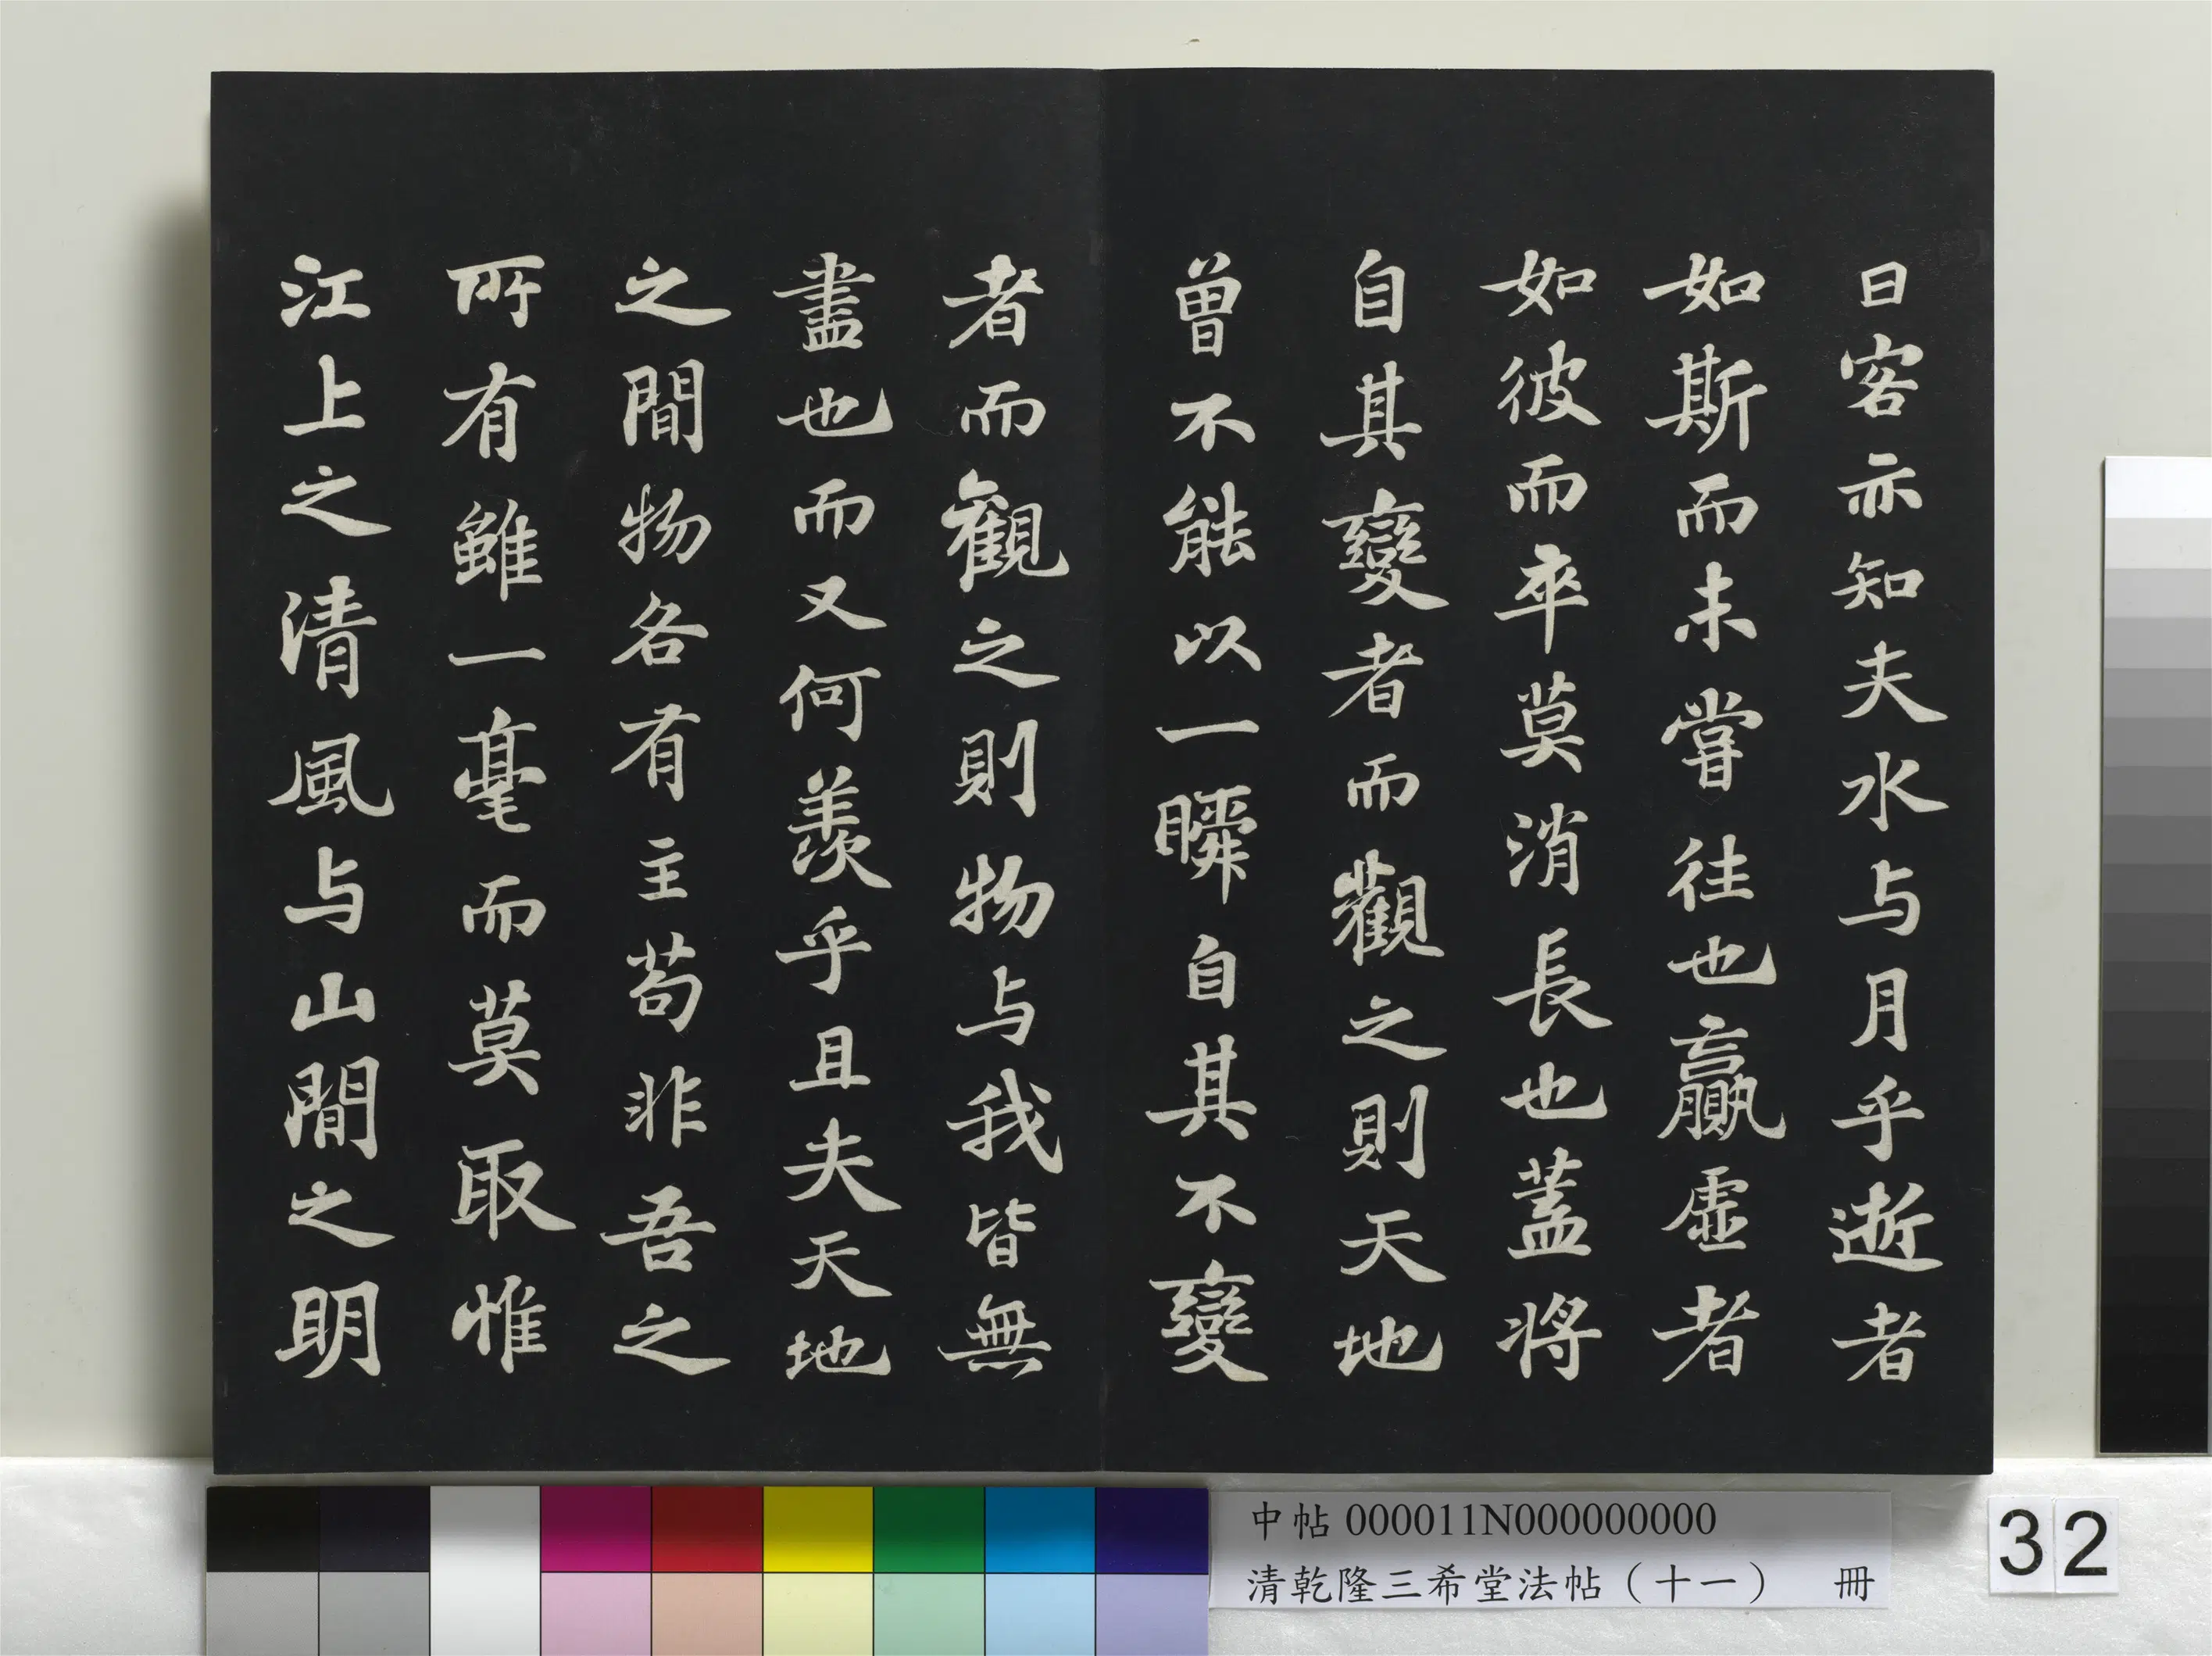 曰客亦知夫水与月乎逝者
如斯而未嘗往也贏虛者
如彼而卒莫消長也蓋將
自其變者而觀之則天地
曾不能以一瞬自其不變
者而觀之則物与我皆無
盡也而又何羨乎且夫天地
之間物各有主苟非吾之
所有雖一毫而莫取惟
江上之清風与山間之明
中帖 000011N000000000
清乾隆三希堂法帖（十一） 冊
32